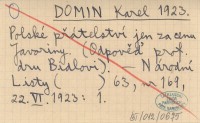 DOMIN Karel 1923.
Polské přátelství jen za cenu
Javoriny (Odpověď prof.
dru Bidlovi). — Národní
Listy ( ) 63, № 169,
22. VI. 1923: 1.